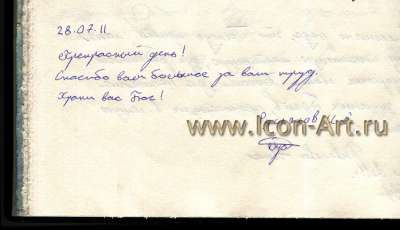 28.07.11
Прекрасный день!
Спасибо вам большое за ваш труд.
Храни вас Бог!
www.Icon-Art.ru